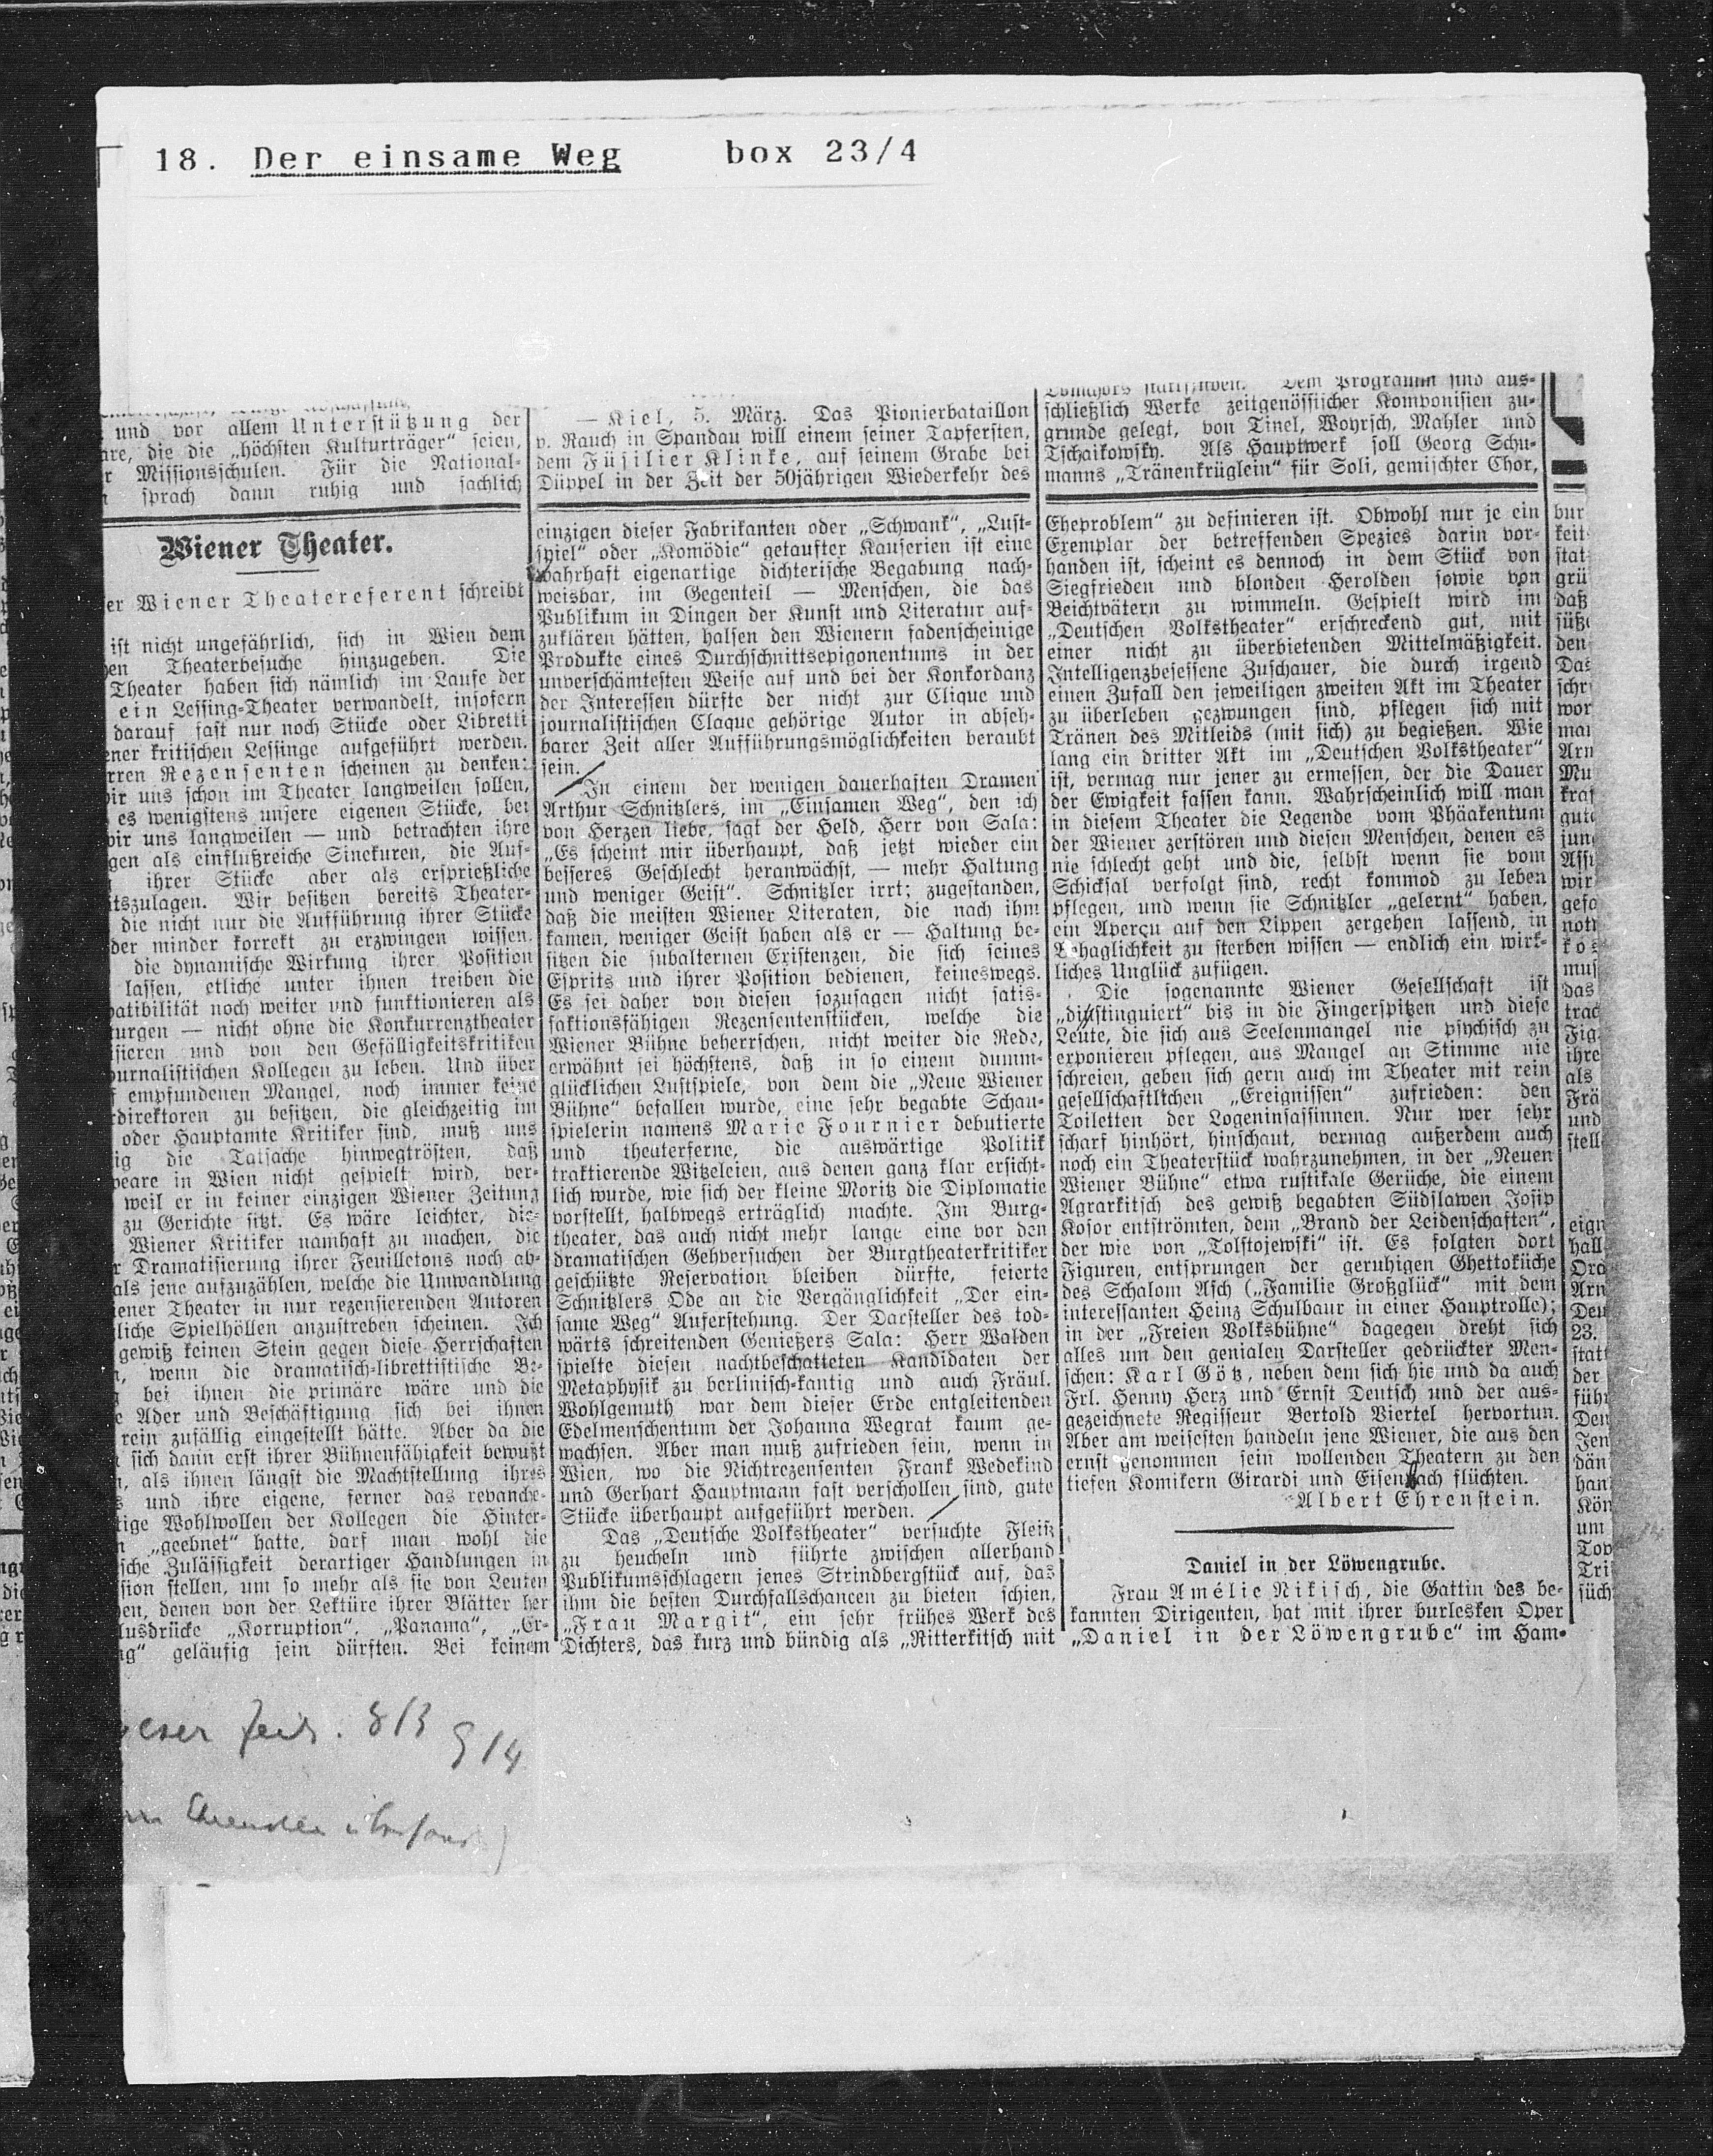 18. Der einsame Weg box 23/4
und vor allem Unterstützung der
die die „höchsten Kulturträger“ seien,
Missionsschulen. Für die National-
sprach dann ruhig und sachlich
— Kiel, 5. März. Das Pionierbataillon
v. Rauch in Spandau will einem seiner Tapfersten,
dem Füsilier Klinke, auf seinem Grabe bei
Düppel in der Zeit der 50jährigen Wiederkehr des
Dem Programm sind aus-
schließlich Werke zeitgenössischer Komponisten zu-
grunde gelegt, von Tinel, Woyrsch, Mahler und
Tschaikowsky. Als Hauptwerk soll Georg Schu-
manns „Tränenkrüglein“ für Soli, gemischter Chor,
Wiener Theater.
er Wiener Theaterreferent schreibt
ist nicht ungefährlich, sich in Wien dem
en Theaterbesuche hinzugeben. Die
Theater haben sich nämlich im Laufe der
ein Lessing-Theater verwandelt, insofern
darauf fast nur noch Stücke oder Libretti
ener kritischen Lessinge aufgeführt werden.
rren Rezensenten scheinen zu denken:
ir uns schon im Theater langweilen sollen,
es wenigstens unsere eigenen Stücke, bei
wir uns langweilen — und betrachten ihre
gen als einflußreiche Sinekuren, die Auf-
ihrer Stücke aber als ersprießliche
itszulagen. Wir besitzen bereits Theater-
die nicht nur die Aufführung ihrer Stücke
der minder korrekt zu erzwingen wissen.
die dynamische Wirkung ihrer Position
lassen, etliche unter ihnen treiben die
patibilität noch weiter und funktionieren als
turgen — nicht ohne die Konkurrenztheater
isieren und von den Gefälligkeitskritiken
ournalistischen Kollegen zu leben. Und über
empfundenen Mangel, noch immer keine
direktoren zu besitzen, die gleichzeitig im
oder Hauptamte Kritiker sind, muß uns
ig die Tatsache hinwegtrösten, daß
peare in Wien nicht gespielt wird, ver-
weil er in keiner einzigen Wiener Zeitung
zu Gerichte sitzt. Es wäre leichter, die-
Wiener Kritiker namhaft zu machen, die
r Dramatisierung ihrer Feuilletons noch ab-
als jene aufzuzählen, welche die Umwandlung
iener Theater in nur rezensierenden Autoren
liche Spielhöllen anzustreben scheinen. Ich
gewiß keinen Stein gegen diese Herrschaften
, wenn die dramatisch-librettistische Be-
bei ihnen die primäre wäre und die
e Ader und Beschäftigung sich bei ihnen
rein zufällig eingestellt hätte. Aber da die
sich dann erst ihrer Bühnenfähigkeit bewußt
, als ihnen längst die Machtstellung ihres
s und ihre eigene, ferner das revanche-
tige Wohlwollen der Kollegen die Hinter-
„geebnet“ hatte, darf man wohl die
sche Zulässigkeit derartiger Handlungen in
sion stellen, um so mehr als sie von Leuten
en, denen von der Lektüre ihrer Blätter her
lusdrücke „Korruption“, „Panama“, „Er-
ng“ geläufig sein dürften. Bei keinem
einzigen dieser Fabrikanten oder „Schwank“, „Lust-
spiel“ oder „Komödie“ getaufter Kauserien ist eine
wahrhaft eigenartige dichterische Begabung nach-
weisbar, im Gegenteil — Menschen, die das
Publikum in Dingen der Kunst und Literatur auf-
zuklären hätten, halsen den Wienern fadenscheinige
Produkte eines Durchschnittsepigonentums in der
unverschämtesten Weise auf und bei der Konkordanz
der Interessen dürfte der nicht zur Clique und
journalistischen Claque gehörige Autor in abseh-
barer Zeit aller Aufführungsmöglichkeiten beraubt
sein.
In einem der wenigen dauerhaften Dramen
Arthur Schnitzlers, im „Einsamen Weg“, den ich
von Herzen liebe, sagt der Held, Herr von Sala:
„Es scheint mir überhaupt, daß jetzt wieder ein
besseres Geschlecht heranwächst, — mehr Haltung
und weniger Geist“. Schnitzler irrt; zugestanden,
daß die meisten Wiener Literaten, die nach ihm
kamen, weniger Geist haben als er — Haltung be-
sitzen die subalternen Existenzen, die sich seines
Esprits und ihrer Position bedienen, keineswegs.
Es sei daher von diesen sozusagen nicht satis-
faktionsfähigen Rezensentenstücken, welche die
Wiener Bühne beherrschen, nicht weiter die Rede,
erwähnt sei höchstens, daß in so einem dumm-
glücklichen Lustspiele, von dem die „Neue Wiener
Bühne“ befallen wurde, eine sehr begabte Schau-
spielerin namens Marie Fournier debutierte
und theaterferne, die auswärtige Politik
traktierende Witzeleien, aus denen ganz klar ersicht-
lich wurde, wie sich der kleine Moritz die Diplomatie
vorstellt, halbwegs erträglich machte. Im Burg-
theater, das auch nicht mehr lange eine vor den
dramatischen Gehversuchen der Burgtheaterkritiker
geschützte Reservation bleiben dürfte, feierte
Schnitzlers Ode an die Vergänglichkeit „Der ein-
same Weg“ Auferstehung. Der Darsteller des tod-
wärts schreitenden Genießers Sala: Herr Walden
spielte diesen nachtbeschatteten Kandidaten der
Metaphysik zu berlinisch-kantig und auch Fräul.
Wohlgemuth war dem dieser Erde entgleitenden
Edelmenschentum der Johanna Wegrat kaum ge-
wachsen. Aber man muß zufrieden sein, wenn in
Wien, wo die Nichtrezensenten Frank Wedekind
und Gerhart Hauptmann fast verschollen sind, gute
Stücke überhaupt aufgeführt werden.
Das „Deutsche Volkstheater“ versuchte Fleiß
zu heucheln und führte zwischen allerhand
Publikumsschlagern jenes Strindbergstück auf, das
ihm die besten Durchfallschancen zu bieten schien,
„Frau Margit“, ein sehr frühes Werk des
Dichters, das kurz und bündig als „Ritterkitsch mit
Eheproblem“ zu definieren ist. Obwohl nur je ein
Exemplar der betreffenden Spezies darin vor-
handen ist, scheint es dennoch in dem Stück von
Siegfrieden und blonden Herolden sowie von
Beichtvätern zu wimmeln. Gespielt wird im
„Deutschen Volkstheater“ erschreckend gut, mit
einer nicht zu überbietenden Mittelmäßigkeit.
Intelligenzbesessene Zuschauer, die durch irgend
einen Zufall den jeweiligen zweiten Akt im Theater
zu überleben gezwungen sind, pflegen sich mit
Tränen des Mitleids (mit sich) zu begießen. Wie
lang ein dritter Akt im „Deutschen Volkstheater“
ist, vermag nur jener zu ermessen, der die Dauer
der Ewigkeit fassen kann. Wahrscheinlich will man
in diesem Theater die Legende vom Phäakentum
der Wiener zerstören und diesen Menschen, denen es
nie schlecht geht und die, selbst wenn sie vom
Schicksal verfolgt sind, recht kommod zu leben
pflegen, und wenn sie Schnitzler „gelernt“ haben,
ein Aperçu auf den Lippen zergehen lassend, in
Behaglichkeit zu sterben wissen — endlich ein wirk-
liches Unglück zufügen.
Die sogenannte Wiener Gesellschaft ist
„distinguiert“ bis in die Fingerspitzen und diese
Leute, die sich aus Seelenmangel nie psychisch zu
exponieren pflegen, aus Mangel an Stimme nie
schreien, geben sich gern auch im Theater mit rein
gesellschaftlichen „Ereignissen“ zufrieden: den
Toiletten der Logeninsassinnen. Nur wer sehr
scharf hinhört, hinschaut, vermag außerdem auch
noch ein Theaterstück wahrzunehmen, in der „Neuen
Wiener Bühne“ etwa rustikale Gerüche, die einem
Agrarkitsch des gewiß begabten Südslawen Josip
Kosor entströmten, dem „Brand der Leidenschaften“,
der wie von „Tolstojewski“ ist. Es folgten dort
Figuren, entsprungen der geruhigen Ghettoküche
des Schalom Asch („Familie Großglück“ mit dem
interessanten Heinz Schulbaur in einer Hauptrolle);
in der „Freien Volksbühne“ dagegen dreht sich
alles um den genialen Darsteller gedrückter Men-
schen: Karl Götz, neben dem sich hie und da auch
Frl. Henny Herz und Ernst Deutsch und der aus-
gezeichnete Regisseur Bertold Viertel hervortun.
Aber am weisesten handeln jene Wiener, die aus den
ernst genommen sein wollenden Theatern zu den
tiefen Komikern Girardi und Eisenbach flüchten.
Albert Ehrenstein.
Daniel in der Löwengrube.
Frau Amélie Nikisch, die Gattin des be-
kannten Dirigenten, hat mit ihrer burlesken Oper
„Daniel in der Löwengrube“ im Ham-
bur
keit
stat
grü
daß
süße
den
Das
schr
wor
mai
Arn
Mu
kraf
gute
jun
Assi
wir
gefa
not
kos
mus
das
trac
Fig
ihre
als
Frä
und
stell
eign
hall
Orc
Arn
Deu
23.
stat
der
führ
Den
Jen
dän
han
Kön
um
Tov
Tri
süch
8/3 914